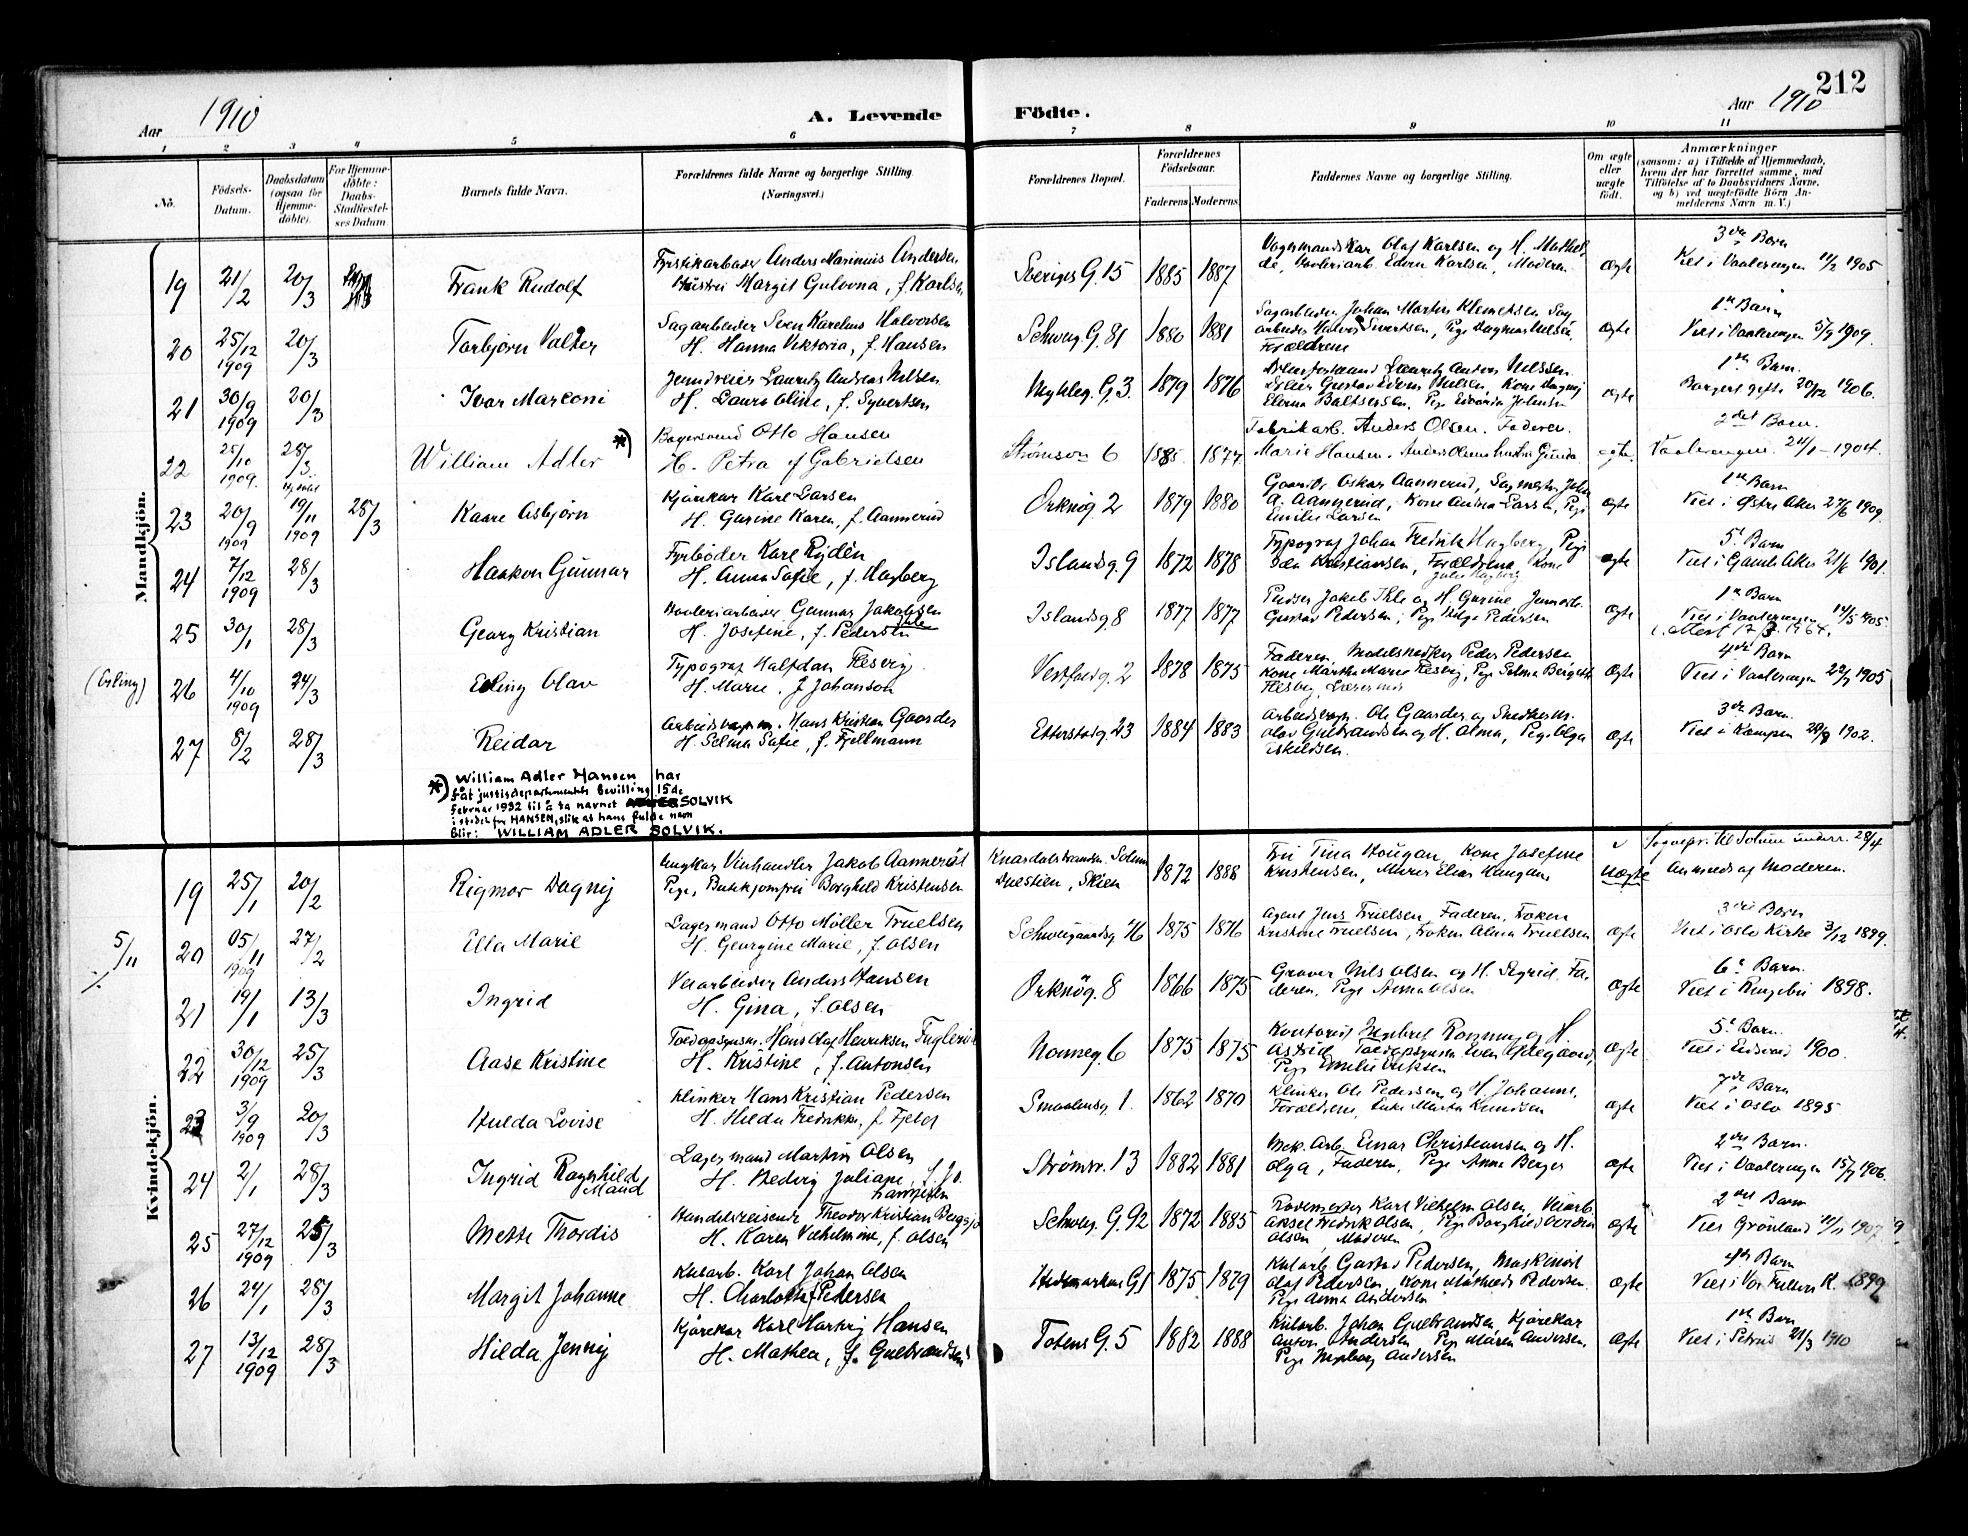 212
Aar 1910
A. Levende
Födte.
Aar 1910
1 2 3 4 5 6 7 8 9 10 11
No.
Födsels-
Datum.
Daabsdatum
(ogsaa for
Hjemme-
döbte).
For Hjemme-
döbte:
Daabs-
Stadfæstel-
ses Datum
Barnets fulde Navn.
Forældrenes fulde Navne og borgerlige Stilling.
(Næringsvei.)
Forældrenes Bopæl.
Forældrenes
Födselsaar.
Faderens Moderens
Faddernes Navne og borgerlige Stilling.
Om ægte
eller
uægte
födt.
Anmærkninger
(saasom: a) i Tilfælde af Hjemmedaab,
hvem der har forrettet samme, med
Tilföielse af to Daabsvidners Navne,
og b) ved uægtefödte Börn An-
melderens Navn m. V.)
Mandkjön.
19 21/2 20/3 Frank Rudolf
Fyrstikarbeider Anders Marinius Andersen
Hustru Margit Gulovna, f. Karlsen
Sveriges G. 15 1885 1887
Vognmandskar Olaf Karlsen og H. Mathil-
de, Edvin Karlsen, Moderen
ægte
3die Barn
Viet i Vaalerengen 11/2 1905
20 25/12 1909 20/3 Torbjørn Valter
Sagarbeider Sven Karelius Halvorsen
H. Hanna Viktoria, f. Hansen
Schweig. G. 81 1880 1881
Sagarbeider Johan Martin Klemetsen Sag
arbeider Halvor Sivertsen, Pige Dagmar Nilsen
Forældrene
ægte
1ste Barn
Viet i Vaalerengen 5/9 1909.
21 30/9 1909 20/3 Ivar Marconi
Lauritz Andreas Nilsen
H. Laura Oline, f. Syvertsen
Mykleg. G. 3. 1879 1876
Lauritz Anders Nilssen
Gustav Edvin Nilsen, Kone
Elema Baltsersen, Pige Edvarda Johnsen
ægte
1ste Barn.
Borgert gifte 20/12 1906.
22 25/10 1909. 28/3. William Adler *)
Bagersvend Otto Hansen
H. Petra f Gabrielsen
Strömson 6 1885. 1877
Fabrikarb. Anders Olsen. Faderen.
Marie Hansen. Anders Olsens hustru Gunda
ægte.
2det Barn.
Vaalerengen. 24/1 - 1904.
23 20/9 1909 19/11 1909 28/3 Kaare Asbjörn
Kjörekar Karl Larsen
H. Gurine Karen, f. Aannerud
Orknög. 2 1879 1880
Gaardb. Oskar Aannerud, Sagmester John
A. Aannerud, Kone Andrea Larsen, Pige
Emilie Larsen
ægte
1ste Barn
Viet i Østre Aker 27/6 1909.
24 7/12 1909 28/3 Haakon Gunnar
Fyrböder Karl Rydén
H. Anna Sofie, f. Hagberg
Islandsg. 9 1872 1878
Typograf Johan Fredrik Hagberg, Pige
Kristiansen, Forældrene, Kone
Julie Hagberg
ægte
5te Barn
Viet i Gamle Aker 21/6 1901.
25 30/1 28/3 Georg Kristian
Gunnar Jakobsen
H. Josefine, f. Pedersen
Islandsg. 8 1877 1877
Pudser Jakob Ihle og H. Gurine
Gustav Pedersen, Pige Helga Pedersen
ægte
1ste Barn
Viet i Vaalerengen 14/5 1905
Mort 17/3. 1964.
(Erling) 26 4/10 1909 24/3 Erling Olav
Typograf Halfdan Flesvig.
H. Marie. f Johanson
Vestfoldg. 2 1878 1875
Faderen, Modelsnedker Peder Pedersen
Kone Märtha Marie Flesvig, Pige Selma Bergette
Flesvig, Lærerinde
ægte
4de Barn
Viet i Vaalerengen 22/7 1905
27 8/2 28/3 Reidar
Hans Kristian Gaarder
H. Selma Sofie, f. Fjellmann
Etterstadg. 23 1884 1883
Ole Gaarder og Snedkerm.
Olav Gulbrandsen og H. Alma, Pige Olga
Eskildsen.
ægte
3die Barn.
Viet i Kampen 28/9 1902.
*) William Adler Hansen har
fåt justisdepartementets bevilling 15de
februar 1932 til å ta navnet SOLVIK
i stedet for HANSEN, slik at hans fulde navn
blir: WILLIAM ADLER SOLVIK.
Kvindekjön.
19 25/1 20/2 Rigmor Dagny
Ungkar Vinhandler Jakob Aannerød
Pige, Butikjomfru Borghild Kristensen
Skien 1872 1888
Fru Tina Hougan, Kone Josefine
Kristensen, Murer Elias Haugan
uægte
28/4
Anmeldt af Moderen.
5/11 20 05/11 1909 27/2 Ella Marie
Lagermand Otto Möller Truelsen
H. Georgine Marie, f. Olsen
Schweigaardsg 76 1875 1876
Agent Jens Truelsen, Faderen, Fröken
Kristine Truelsen, Fröken Alma Truelsen
ægte
3die Barn
Viet i Oslo Kirke 3/12 1899.
21 19/1 13/3 Ingrid
Anders Hansen
H. Gina, f. Olsen
Orknög. 8 1866 1875
Graver Nils Olsen og H. Ingrid, Fa-
deren, Pige Olsen
ægte
6te Barn.
Viet i Ringebu 1898.
22 30/12 1909 25/3 Aase Kristine
Toldopsynsm. Hans Olaf Henriksen Fuglerud
H. Kristine, f. Antonsen
Nonneg. 6 1875 1875
Kontorist Ingebret Romming og H.
Astrid, Toldopsynsm Even Ødegaard,
Pige Emilie Eriksen
ægte
5te Barn.
Viet i Eidsvold 1900.
23 3/9 1909 20/3 Hulda Lovise
Klinker Hans Kristian Pedersen
H. Hilda Fredrikke, f. Fjeld
Smaalensg 1. 1862 1870
Klinker Ole Pedersen og H. Johanne,
Forældrene, Enke Marta Knudsen
ægte
7de Barn
Viet i Oslo 1895
24 2/1 28/3 Ingrid Ragnhild
Maud
Lagermand Martin Olsen
H. Hedvig Juliane, f. Jo-
hannesen
Strömsv. 13 1882 1881
Mek. Arb. Einar Christiansen og H.
Olga, Faderen, Pige Anna Berger
ægte
2det Barn.
Viet i Vaalerengen 15/7 1906.
25 27/12 1909 25/3 Mette Thordis
Handelsreisende Theodor Kristian Bergsjö
H. Karen Vilhelmine, f. Olsen
Schweig. G. 92 1872 1885
Karl Vilhelm Olsen,
Aksel Fredrik Olsen, Pige Borghild
Olsen, Moderen
ægte
2det Barn
Viet Grönland 11/1 1907
26 24/1 28/3 Margit Johanne
Kularb. Karl Johan Olsen
H. Charlotte f Pedersen
Hedemarkens G 1 1875 1879
Kularb. Gustav Pedersen, Maskinist
Olaf Pedersen, Kone Mathilde Pedersen
Pige Anna Andersen
ægte
4de Barn
Viet i Vor Frelsers K. 1899
27 13/12 1909 28/3 Hilda Jenny
Kjörekar Karl Hartvig Hansen
H. Mathea, f. Gulbrandsen
Totens G. 5 1882 1888
Kularb. Johan Gulbrandsen Kjörekar
Anton Andersen Pige Maren Andersen,
Pige Ingeborg Andersen
ægte
1ste Barn
Viet i Petrus 21/3 1910